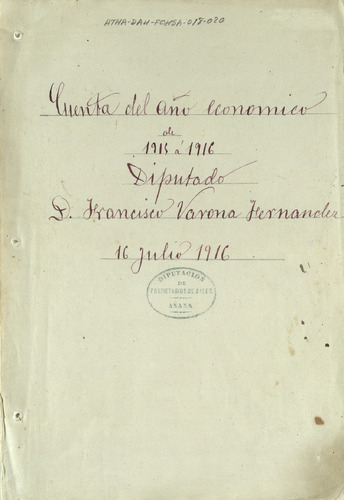 ATHA-DAH-FCHSA-018-020
Cuenta del año economico
de
1915 á 1916
Diputado
D. Francisco Varona Fernandez
16 Julio 1916
DIPUTACION
DE
PROPIETARIOS DE SALES
AÑANA